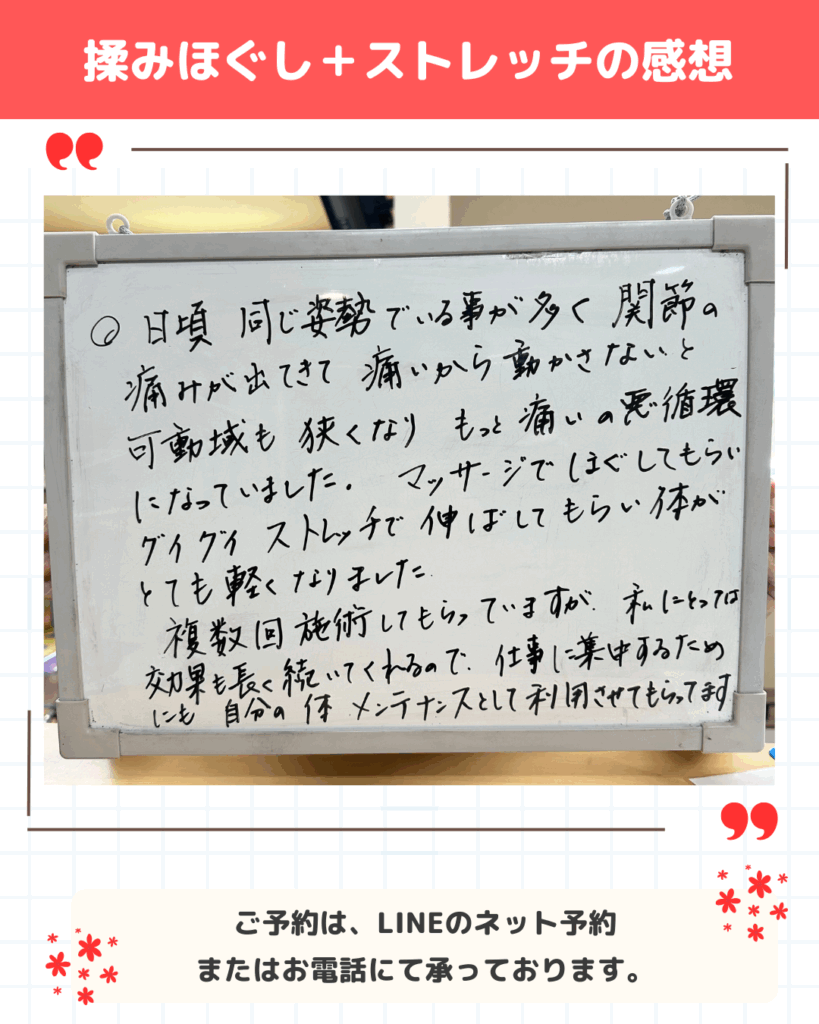 揉みほぐし＋ストレッチの感想
○ 日頃 同じ姿勢でいる事が多く 関節の
痛みが出てきて 痛いから動かさないと
可動域も 狭くなり もっと痛いの悪循環
になっていました. マッサージでほぐしてもらい
グイグイ ストレッチで伸ばしてもらい体が
とても軽くなりました.
複数回施術してもらっていますが. 私にとっては
効果も長く続いてくれるので. 仕事に集中するため
にも 自分の体 メンテナンスとして利用させてもらってます
ご予約は、LINEのネット予約
またはお電話にて承っております。